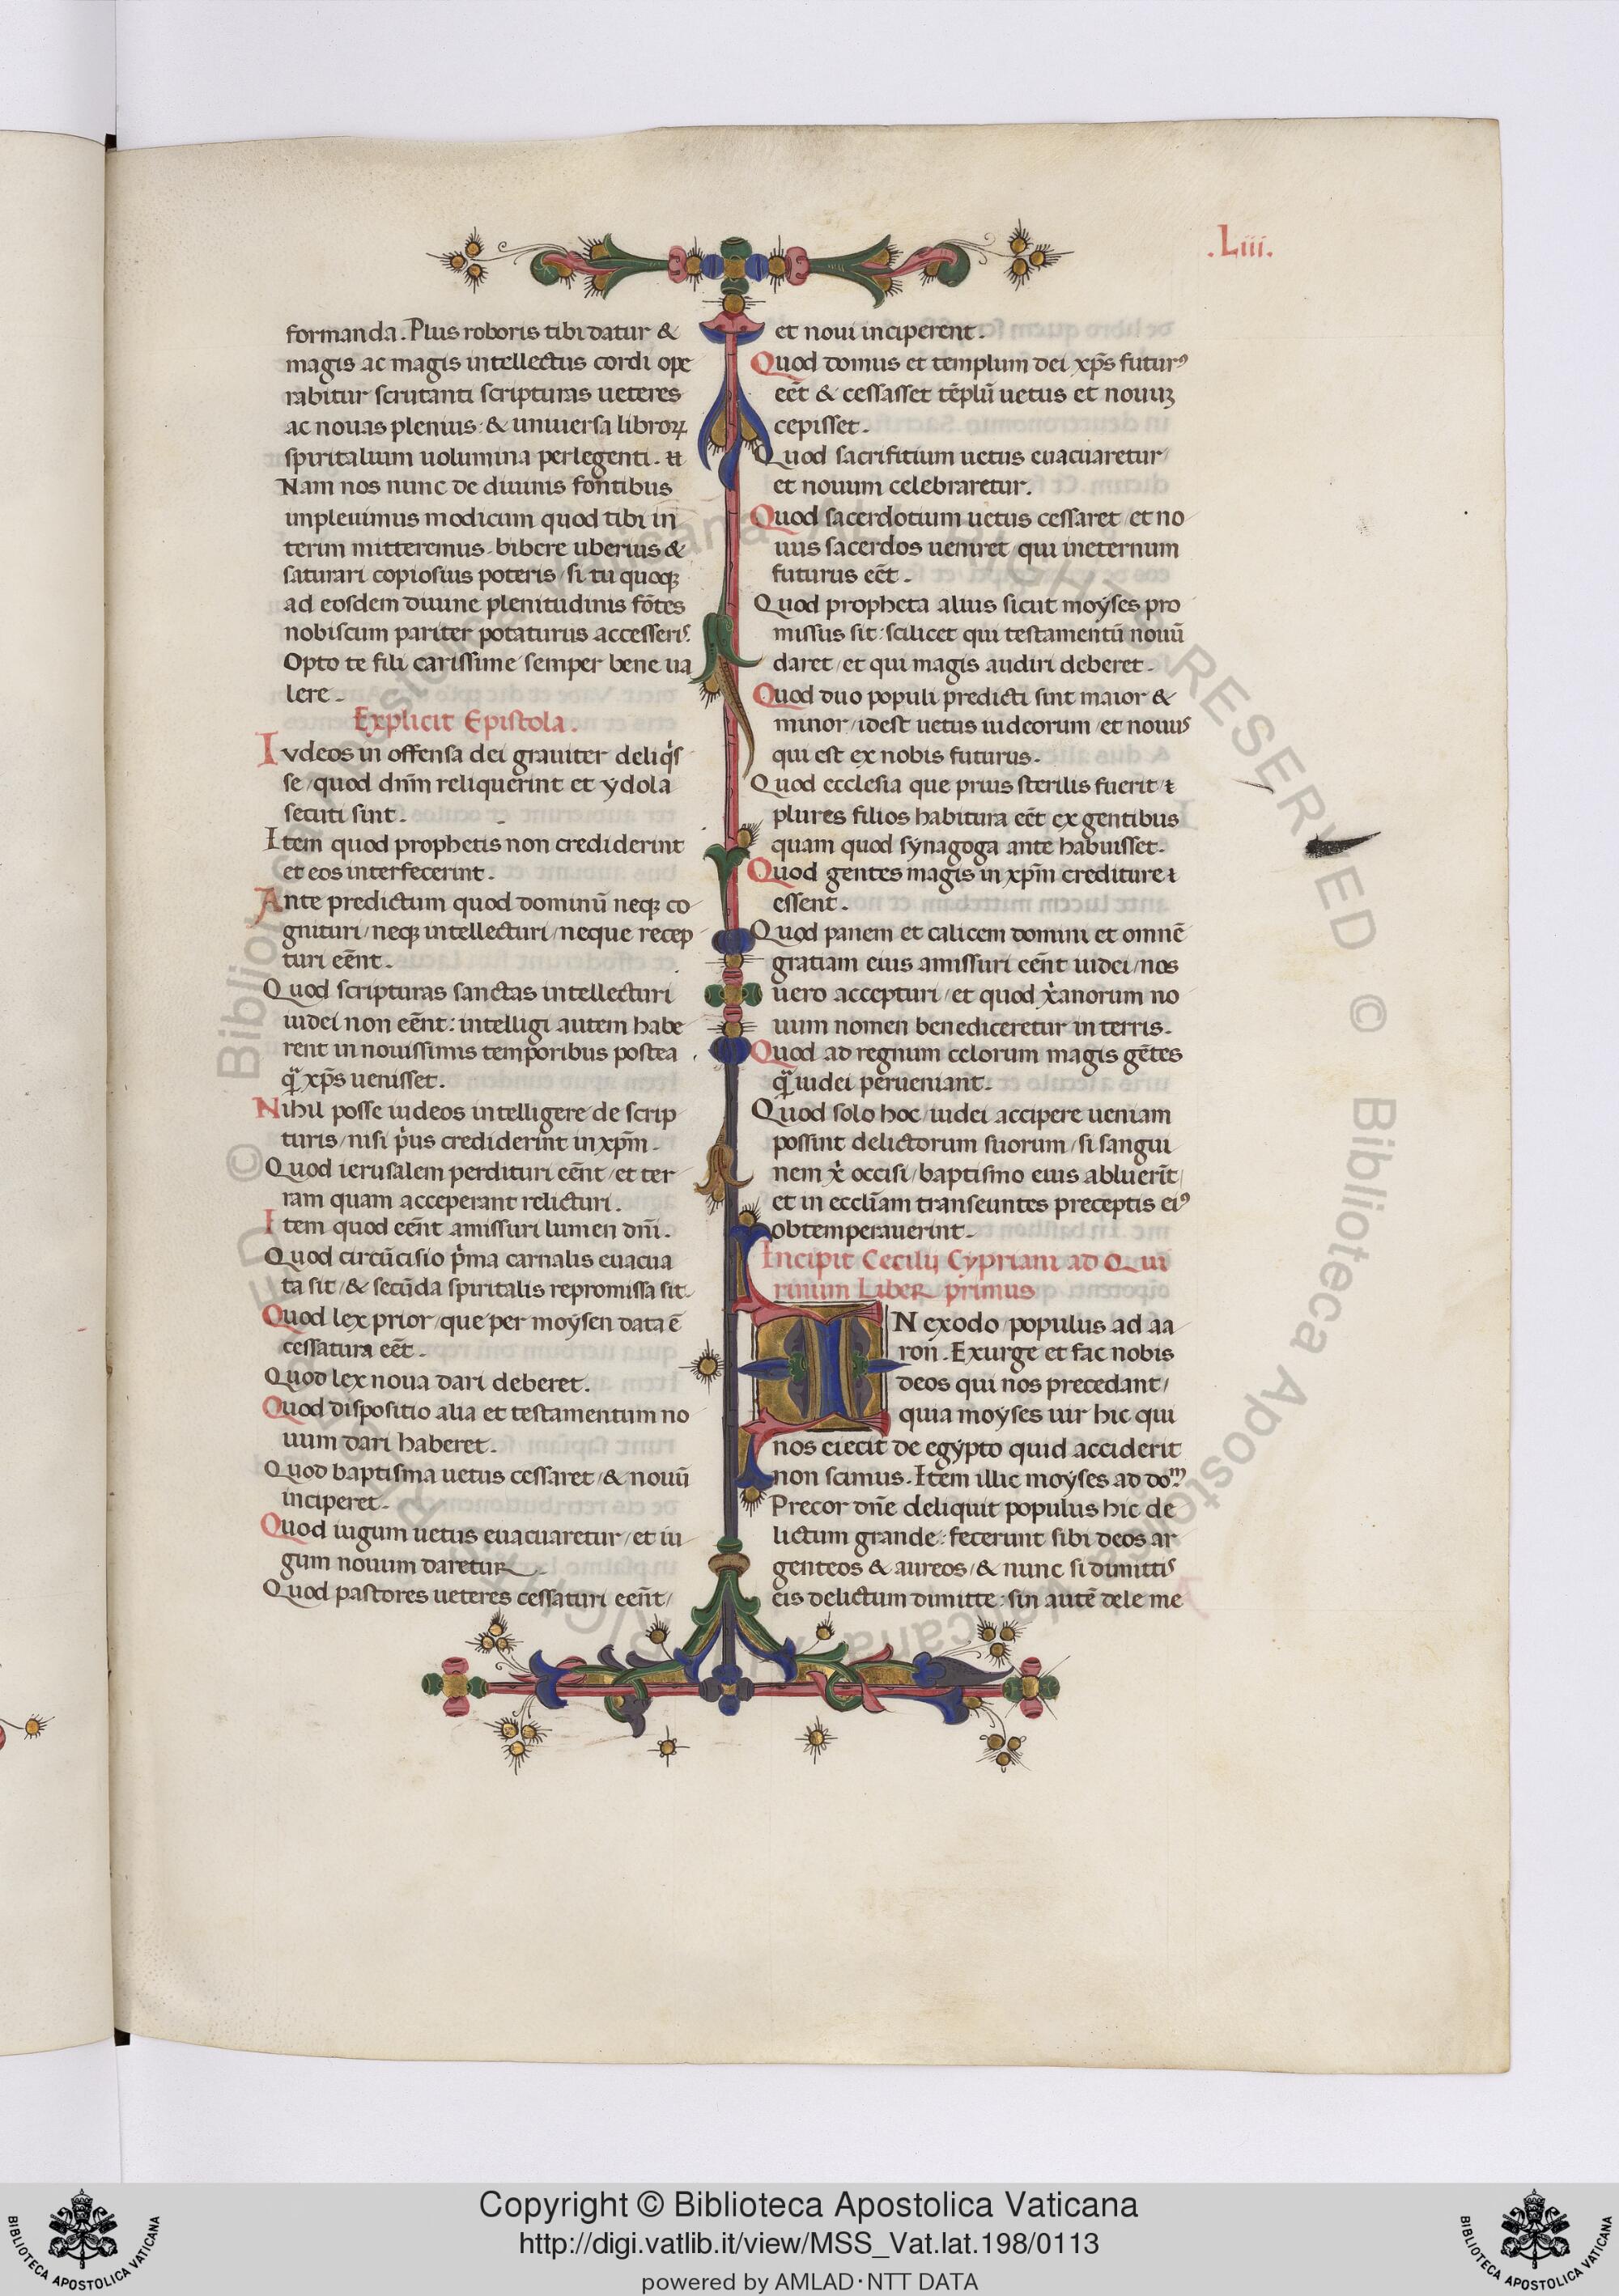 .Liii.
formanda. Plus roboris tibi datur &
magis ac magis intellectus cordi ope
rabitur scrutanti scripturas ueteres
ac nouas plenius: & uniuersa libroꝝ
spiritalium uolumina perlegenti.
Nam nos nunc de diuinis fontibus
impleuimus modicum quod tibi in
terim mitteremus. bibere uberius &
saturari copiosius poteris/ si tu quoqꝫ
ad eosdem diuine plenitudinis fo᷑tes
nobiscum pariter potaturus accesseris.
Opto te fili carissime semper bene ua
lere.
Explicit Epistola.
Iudeos in offensa dei grauiter deliq̇s
se/ quod dn̄m reliquerint et ydola
secuti sint.
Item quod prophetis non crediderint
et eos interfecerint.
Ante predictum quod dominū neqꝫ co
gnituri/ neqꝫ intellecturi/ neque recep
turi eēnt.
Quod scripturas sanctas intellecturi
iudei non eēnt: intelligi autem habe
rent in nouissimis temporibus postea
q̄ xp̄s uenisset.
Nihil posse iudeos intelligere de scrip
turis/ nisi ṗus crediderint in xp̄m.
Quod ierusalem perdituri eēnt/ et ter
ram quam acceperant relicturi.
Item quod eēnt amissuri lumen dn̄i.
Quod circūcisio ṗma carnalis euacua
ta sit/ & secūda spiritalis repromissa sit.
Quod lex prior/ que per moẏsen data ē
cessatura eēt.
Quod lex noua dari deberet.
Quod dispositio alia et testamentum no
uum dari haberet.
Quod baptisma uetus cessaret/ & nouū
inciperet.
Quod iugum uetus euacuaretur/ et iu
gum nouum daretur.
Quod pastores ueteres cessaturi eēnt/
et noui inciperent.
Quod domus et templum dei xp̄s futurꝰ
eēt & cessasset tēplū uetus et nouuꝫ
cepisset.
Quod sacrifitium uetus euacuaretur/
et nouum celebraretur.
Quod sacerdotium uetus cessaret/ et no
uus sacerdos ueniret qui ineternum
futurus eēt.
Quod propheta alius sicut moẏses pro
missus sit: scilicet qui testamentū nouū
daret/ et qui magis audiri deberet.
Quod duo populi predicti sint maior &
minor/ idest uetus iudeorum/ et nouus
qui est ex nobis futurus.
Quod ecclesia que prius sterilis fuerit/
plures filios habitura eēt ex gentibus
quam quod sẏnagoga ante habuisset.
Quod gentes magis in xp̄m crediture
essent.
Quod panem et calicem domini et omnē
gratiam eius amissuri eēnt iudei/ nos
uero accepturi/ et quod ẋanorum no
uum nomen benediceretur in terris.
Quod ad regnum celorum magis gētes
q̄ iudei perueniant.
Quod solo hoc iudei accipere ueniam
possint delictorum suorum/ si sangui
nem ẋ occisi/ baptismo eius abluerīt/
et in eccl̄iam transeuntes preceptis eiꝰ
obtemperauerint.
Incipit Cecilij Cypriani ad Qui
rinium Liber primus
IN exodo/ populus ad aa
ron. Exurge et fac nobis
deos qui nos precedant/
quia moẏses uir hic qui
nos eiecit de egẏpto quid acciderit
non scimus. Item illic moẏses ad doᵐ.
Precor dn̄e deliquit populus hic de
lictum grande: fecerunt sibi deos ar
genteos & aureos/ & nunc si dimittis
eis delictum dimitte: sin autē dele me
Copyright © Biblioteca Apostolica Vaticana
http://digi.vatlib.it/view/MSS_Vat.lat.198/0113
powered by AMLAD·NTT DATA
BIBLIOTECA APOSTOLICA VATICANA
BIBLIOTECA APOSTOLICA VATICANA